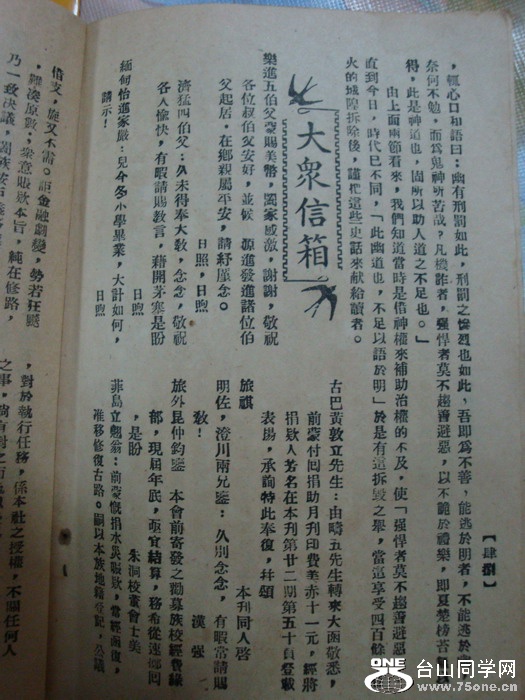 【肆捌】
，輒心口相語曰：幽有刑罰如此，刑罰之慘烈也如此，吾卽爲不善，能逃於明者，不能逃於
奈何不勉，而爲鬼神所苦哉？凡機詐者，强悍者莫不趨善避惡，以不詭於禮樂，卽夏楚榜笞
得，此是神道也，固所以助人道之不足也。」
由上面兩節看來，我們知道當時是借神權來補助治權的不及，使「强悍者莫不趨善避惡
直到今日，時代已不同，「此幽道也，不足以語於明」於是有這拆毀之舉，當這享受四百餘
火的城隍拆除後，謹把這些史話來献給讀者。
大衆信箱
樂進五伯父蒙賜美幣，闔家感激，謝謝，敬祝
各位叔伯父安好，並候 源進發進諸位伯
父起居，在鄉親屬平安，請紓厪念。
日照，日煦
濟猛四伯父：久未得奉大敎，念念，敬祝
各人愉快，有暇請賜教言，藉開茅塞是盼
日照，日煦
緬甸怡進家嚴：兒今冬小學畢業，大計如何，
請示！
日照
古巴黃敦立先生：由疇五先生轉來大函敬悉，
前蒙付囘捐助月刊印費美赤十一元，經將
捐欵人芳名在本刋廿二期第五十頁登載
表揚，承詢特此奉復，幷頌
旅祺
本刋同人啓
明佐，澄川兩兄鑒：久別念念，有暇常請賜
敎！
漢強
旅外昆仲鈞鑒 本會前寄發之勸募族校經費緣
部，現屆年底，亟宜結算，務希從速擲囘
，是盼
朱洞校董會士美
菲島立魁翁：前蒙慨捐水災賬欵，當經函復
准移修復古路。嗣以本族地籍登記，公議
借支，
，對於執行任務，係本社之授權，不關任何人
台山同学网
www.75one.cn
ONE